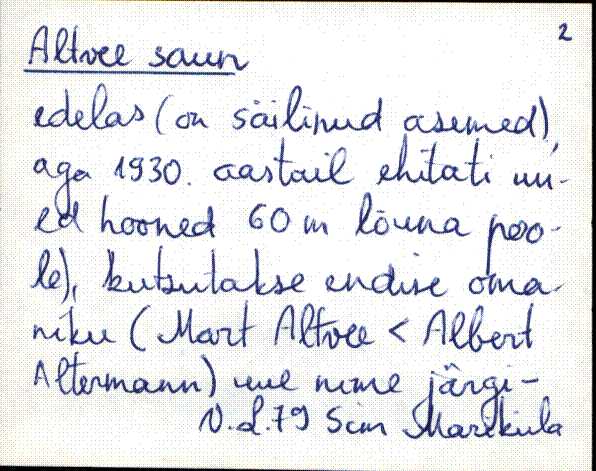 2
Altvee saun
edelas (on säilinud asemed),
aga 1930. aastail ehitati uu-
ed hooned 60 m lõuna poo-
le), kutsutakse endise oma-
niku (Mart Altvee < Albert
Altermann) uue nime järgi -
V.d.79 Sim Mareküla